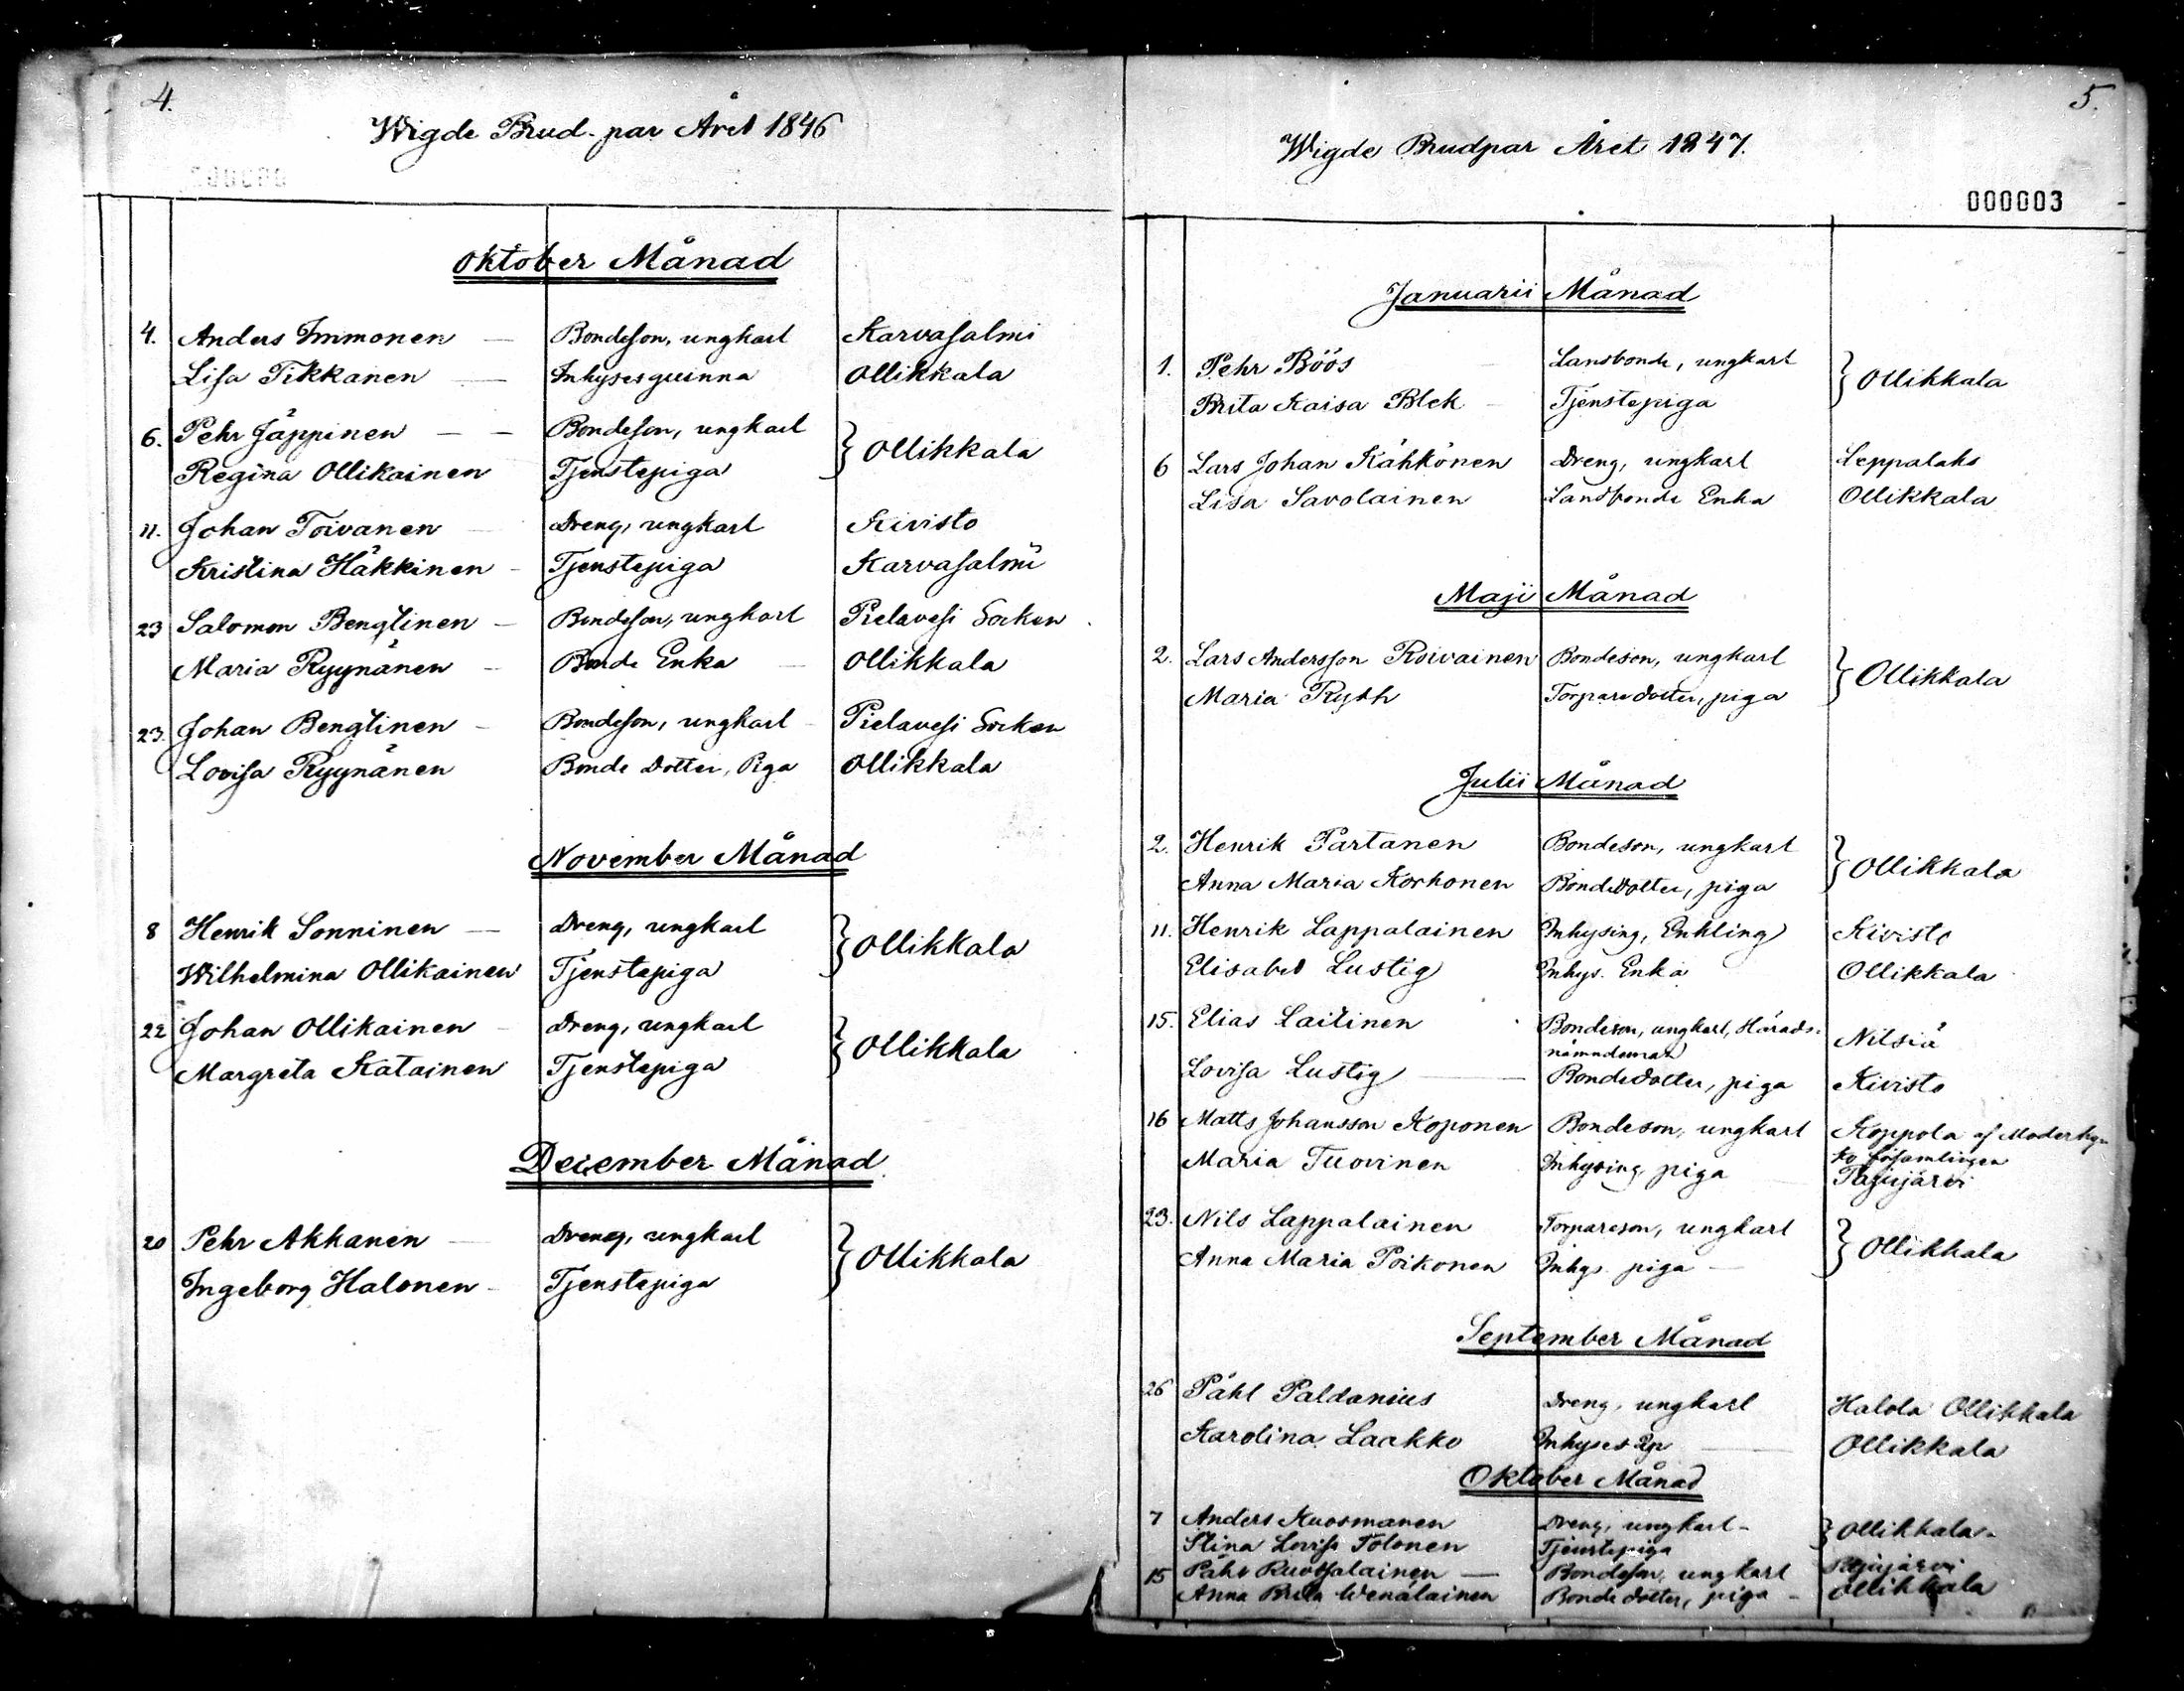 4.
Wigde Brud-par Året 1846
Oktober Månad
4. Anders Immonen — Bondeson, ungkarl Karvasalmi
Lisa Tikkanen — Inhysesquinna Ollikkala
6. Pehr Jäppinen — — Bondeson, ungkarl } Ollikkala
Regina Ollikainen Tjenstepiga
11. Johan Toivanen — Dreng, ungkarl Kivisto
Kristina Häkkinen - Tjenstepiga Karvasalmi
23 Salomon Bengtinen — Bondeson, ungkarl Pielavesi Socken
Maria Ryynänen — Bonde Enka — Ollikkala
23. Johan Bengtinen — Bondeson, ungkarl - Pielavesi Socken
Lovisa Ryynänen Bonde Dotter, Piga Ollikkala
November Månad
8 Henrik Sonninen — Dreng, ungkarl } Ollikkala
Wilhelmina Ollikainen Tjenstepiga
22 Johan Ollikainen - Dreng, ungkarl } Ollikkala
Margreta Katainen Tjenstepiga
December Månad
20 Pehr Akkanen — Dreng, ungkarl } Ollikkala
Ingeborg Halonen - Tjenstepiga
5.
Wigde Brudpar Året 1847.
000003
Januarii Månad
1. Pehr Böös Landbonde, ungkarl } Ollikkala
Brita Kaisa Blek - Tjenstepiga
6 Lars Johan Kähkönen Dreng, ungkarl Leppälaks
Lisa Savolainen Landbonde Enka Ollikkala
Maji Månad
2. Lars Andersson Roivainen Bondeson, ungkarl } Ollikkala
Maria Ryth Torparedotter, piga
Julii Månad
2. Henrik Partanen Bondeson, ungkarl } Ollikkala
Anna Maria Korhonen Bondedotter, piga
11. Henrik Lappalainen Inhysing, Enkling Kivisto
Elisabet Lustig Inhys. Enka Ollikkala
15. Elias Laitinen Bondeson, ungkarl, Härads- Nilsiä
nämndeman
Lovisa Lustig — Bondedotter, piga Kivisto
16 Matts Johansson Koponen Bondeson, ungkarl Koppola af Moderkyr-
ko församlingen
Maria Tuovinen Inhysing piga Pajujärvi
23. Nils Lappalainen Torpareson, ungkarl } Ollikkala
Anna Maria Poikonen Inhys. piga —
September Månad
26 Påhl Paldanius Dreng, ungkarl Halola Ollikkala
Karolina Laakko Inhyses — Ollikkala
Oktober Månad
7 Anders Kuosmanen Dreng, ungkarl - } Ollikkala -
Stina Lovisa Tolonen Tjenstepiga
15 Påhl Ruotsalainen — Bondeson, ungkarl Pajujärvi
Anna Brita Wenäläinen Bonde dotter, piga - Ollikkala